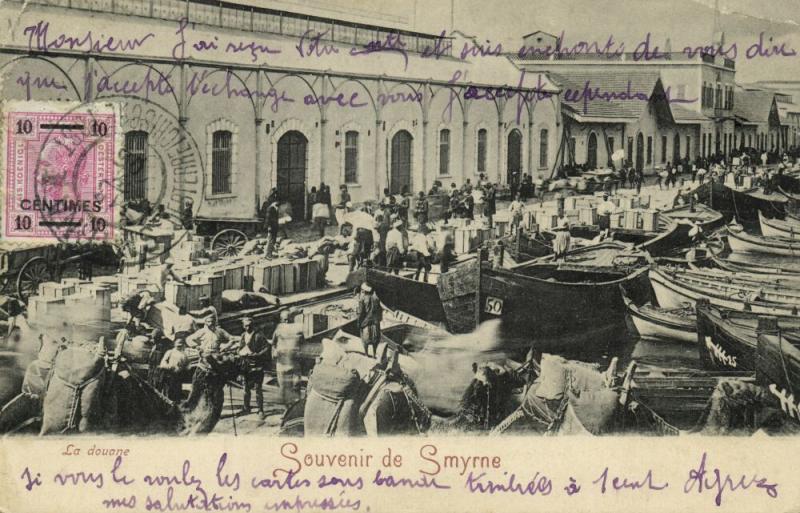 Monsieur J'ai reçu votre carte et suis enchanté de vous dire
que j'accepte l'échange avec vous J'accepte cependant
10 10
CENTIMES
10 10
50
La douane
Souvenir de Smyrne
si vous le voulez les cartes sans bande timbrées à 1 cent. Agréez
mes salutations empressées.